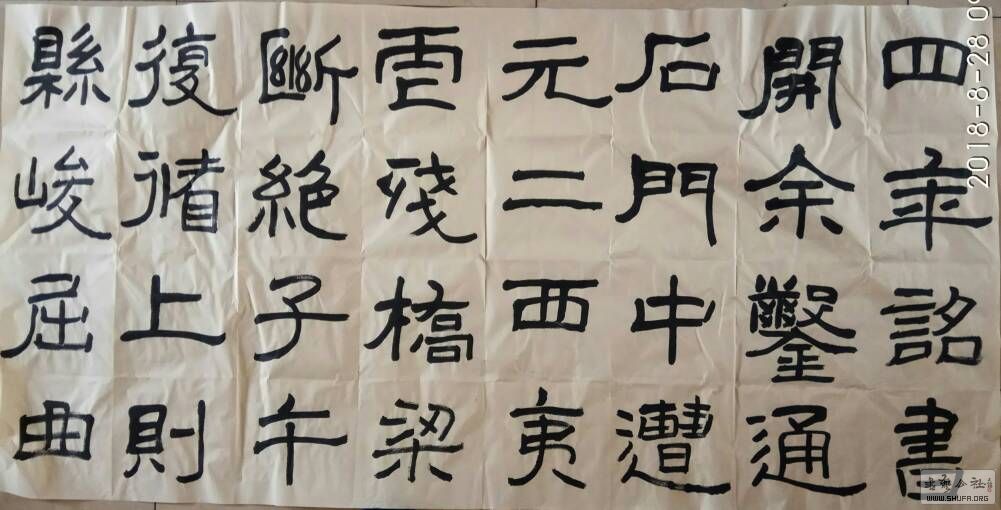 四年詔書
開余鑿通
石門中遭
元二西夷
虐殘橋梁
斷絕子午
復循上則
縣峻屈曲
2018-8-28
WWW.SHUFA.ORG